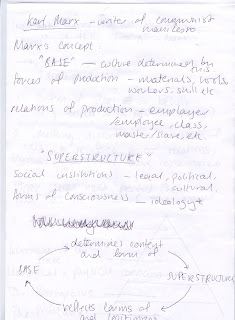 Karl Marx - writer of communist
manifesto
Marx's concept:
"BASE" - culture determined by
this
forces of production - materials, tools,
workers, skill etc
relations of production - employer
/employee, class,
master/slave, etc
"SUPERSTRUCTURE"
Social institutions - legal, political,
cultural.
forms of consciousness - ideology
determines content
and form of
BASE
SUPERSTRUCTURE
reflects forms of
and legitimises